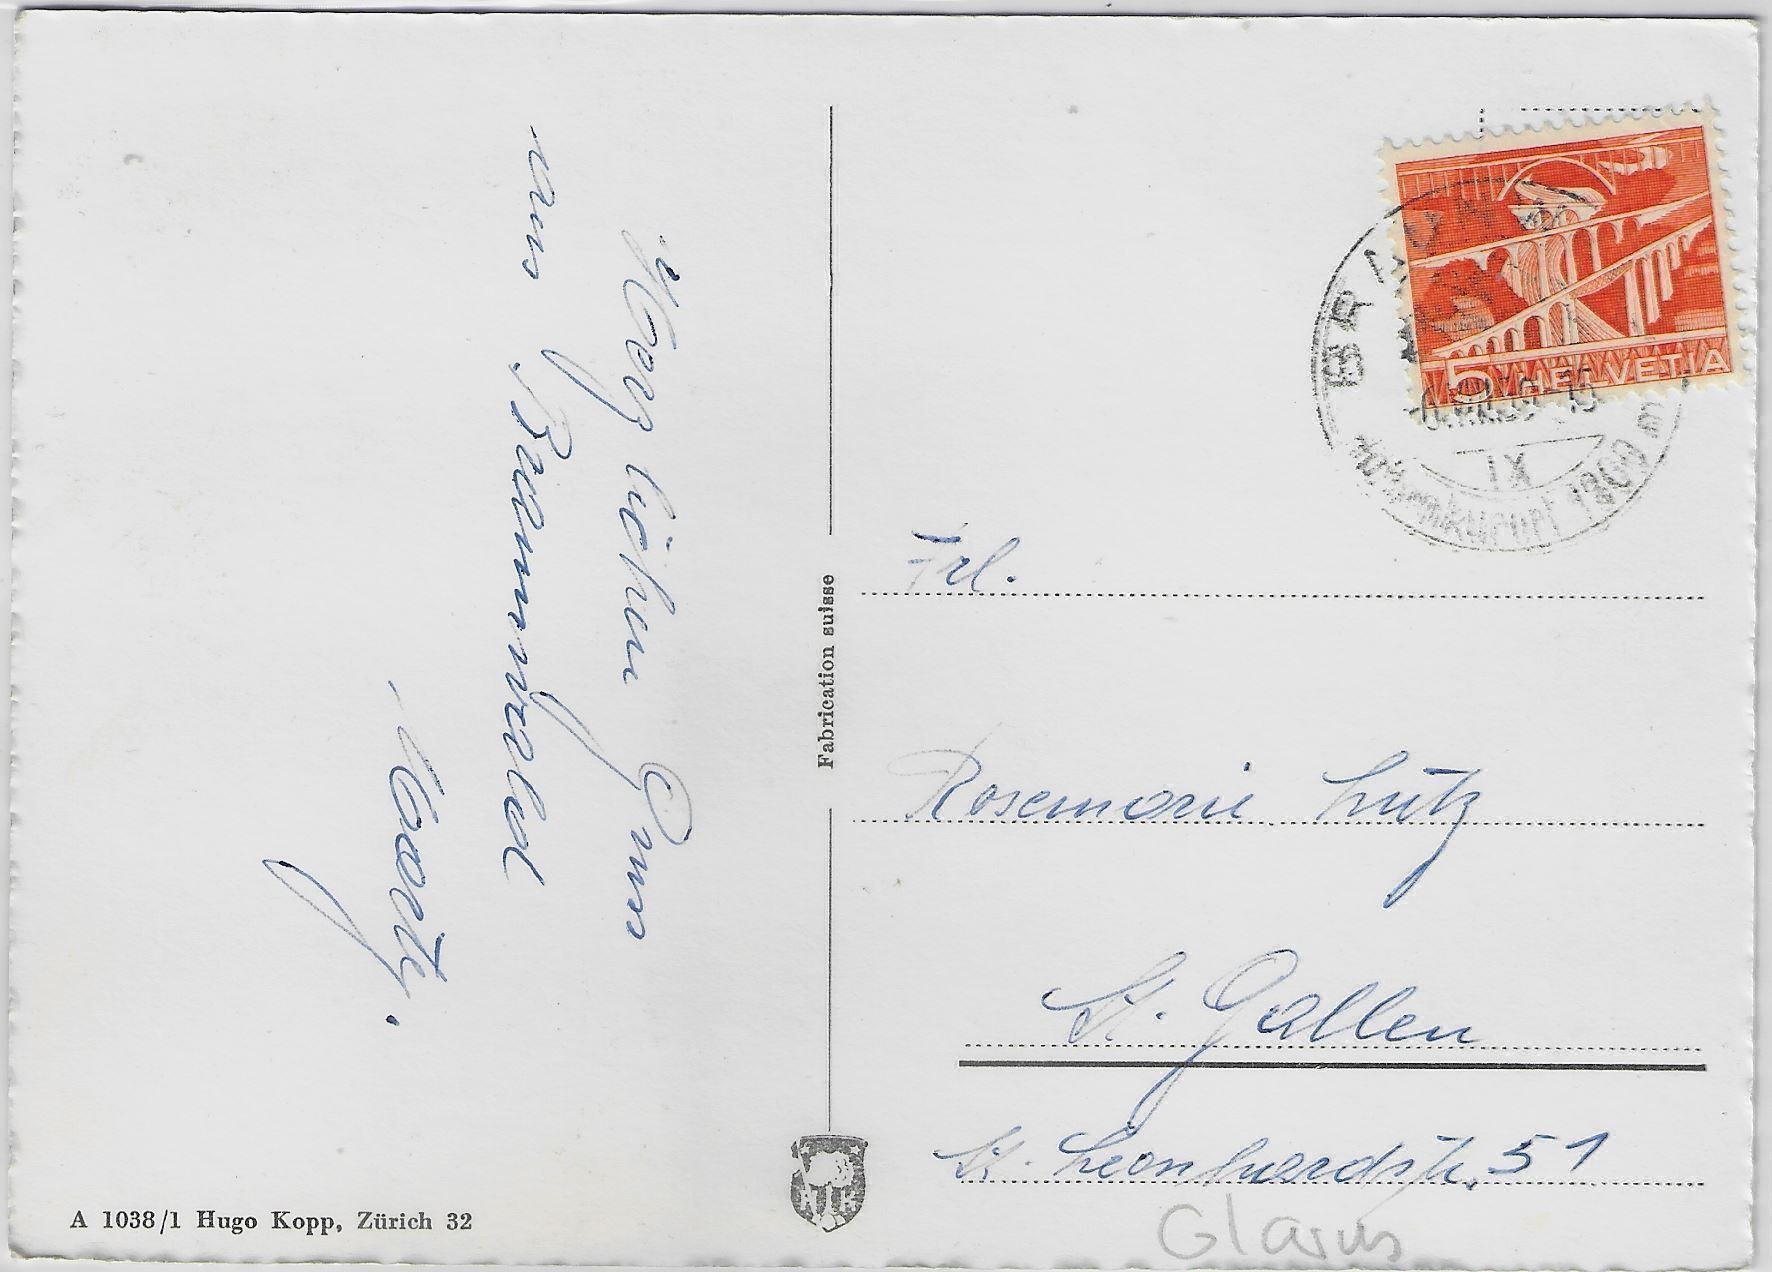 Herzlichen Gruss
aus Braunwald
Moritz.
5 HELVETIA
BRAUNW
Höhenkurort 1300 m
IX
Fabrication suisse
Frl.
Rosemarie Lutz
St. Gallen
St. Leonhardstr. 51
Glarus
HK
A 1038/1 Hugo Kopp, Zürich 32